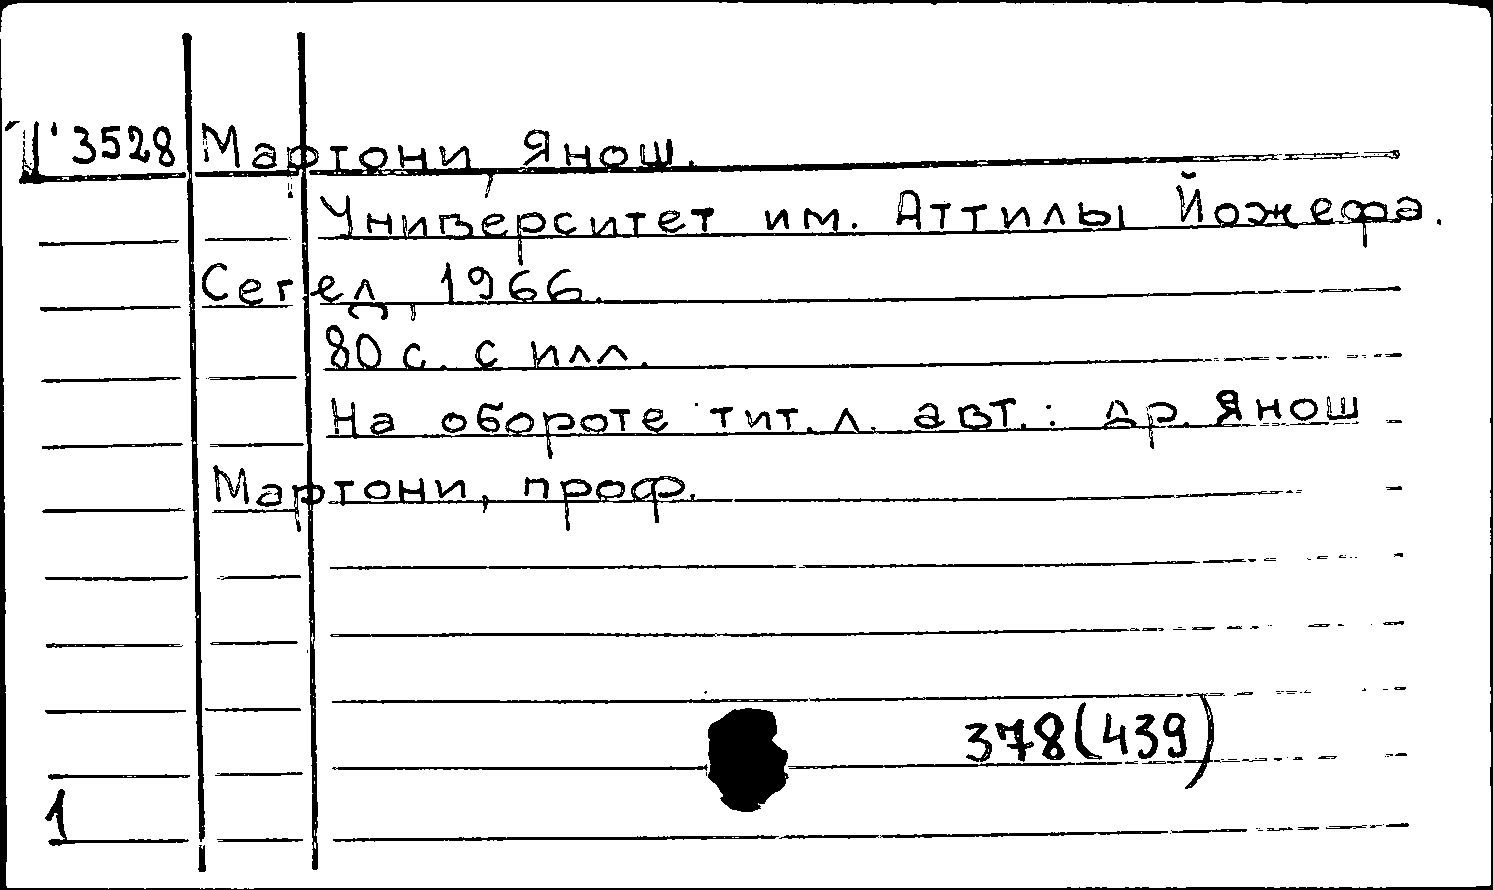 3528 Мартони, Янош.
Университет им. Аттилы Йожефа.
Сегед, 1966.
80 с. с илл.
На обороте тит. л. авт.: др. Янош
Мартони, проф.
378(439)
1